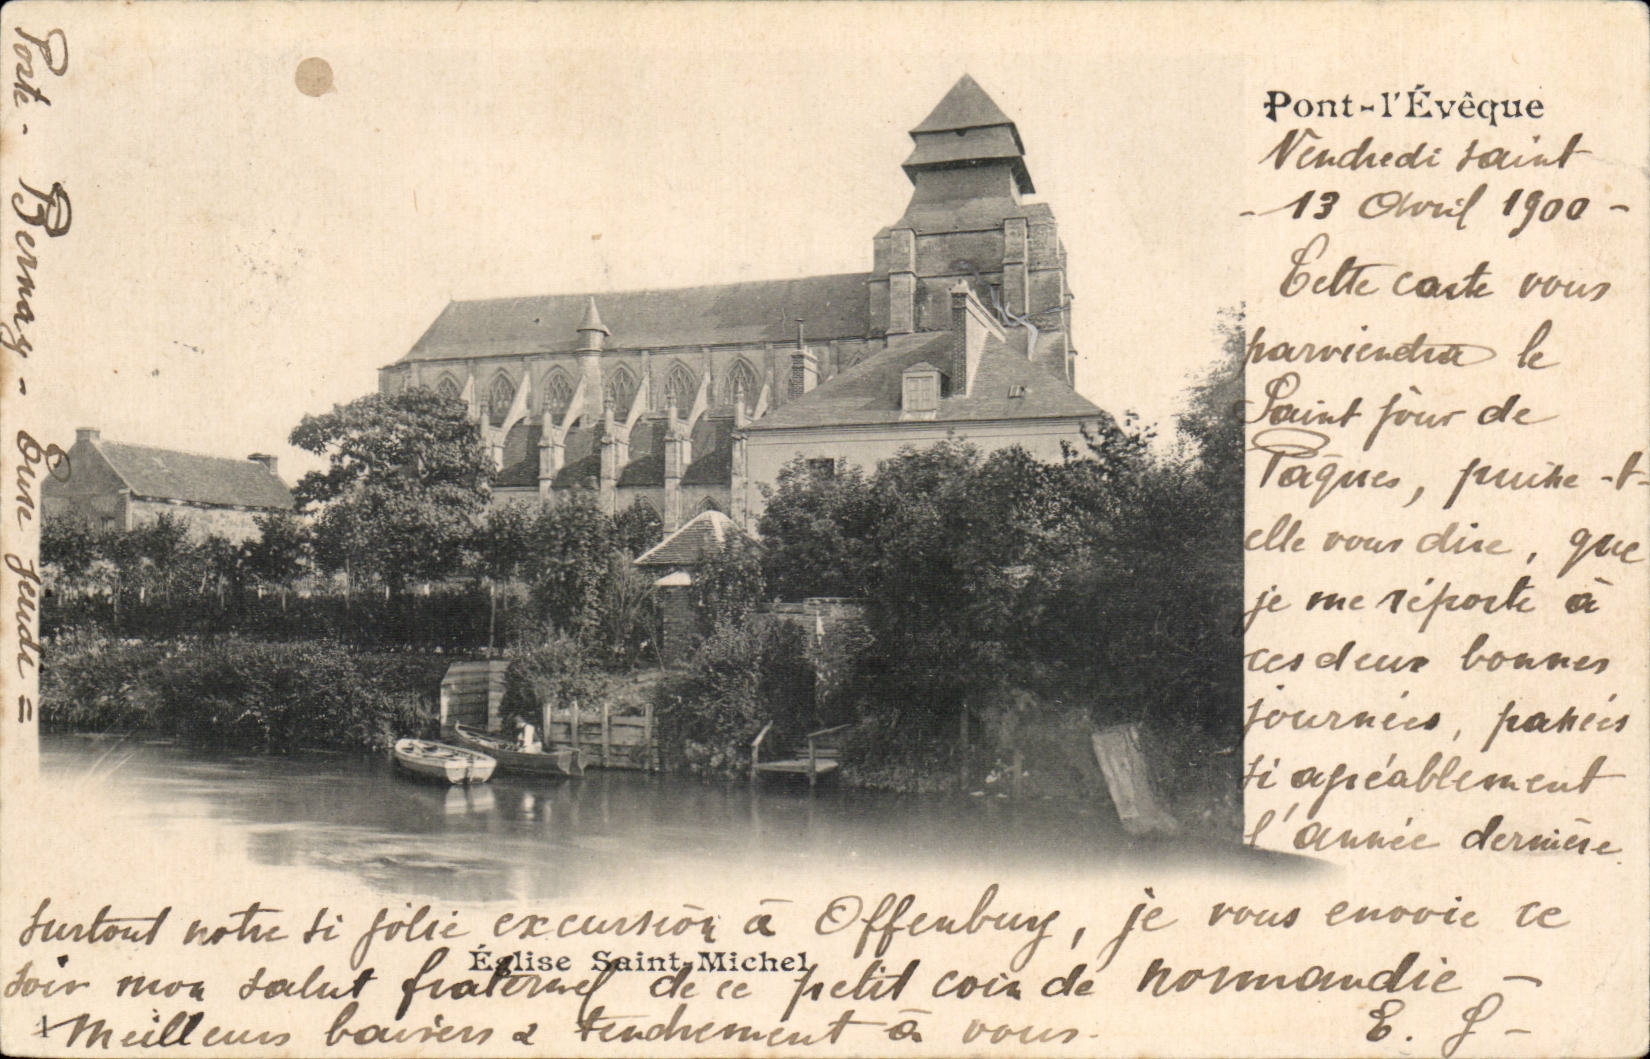 Pont-l'Évêque
Vendredi saint
- 13 Avril 1900 -
Cette carte vous
parviendra le
Saint jour de
Pâques, puisse-t-
elle vous dire, que
je me réporte à
ces deux bonnes
journées, passées
si agréablement
l'année dernière
surtout notre si jolie excursion à Offenburg, je vous envoie ce
Église Saint-Michel
soir mon salut fraternel de ce petit coin de Normandie -
1
Meilleurs baisers & tendrement à vous.
E. J -
Poste - Bernay - Eure